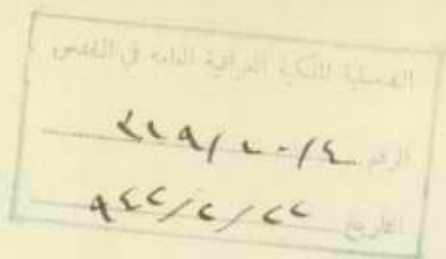 القنصلية الملكية العراقية العامه في القدس
الرقم
التاريخ ٢٢/٢/٩٤٢